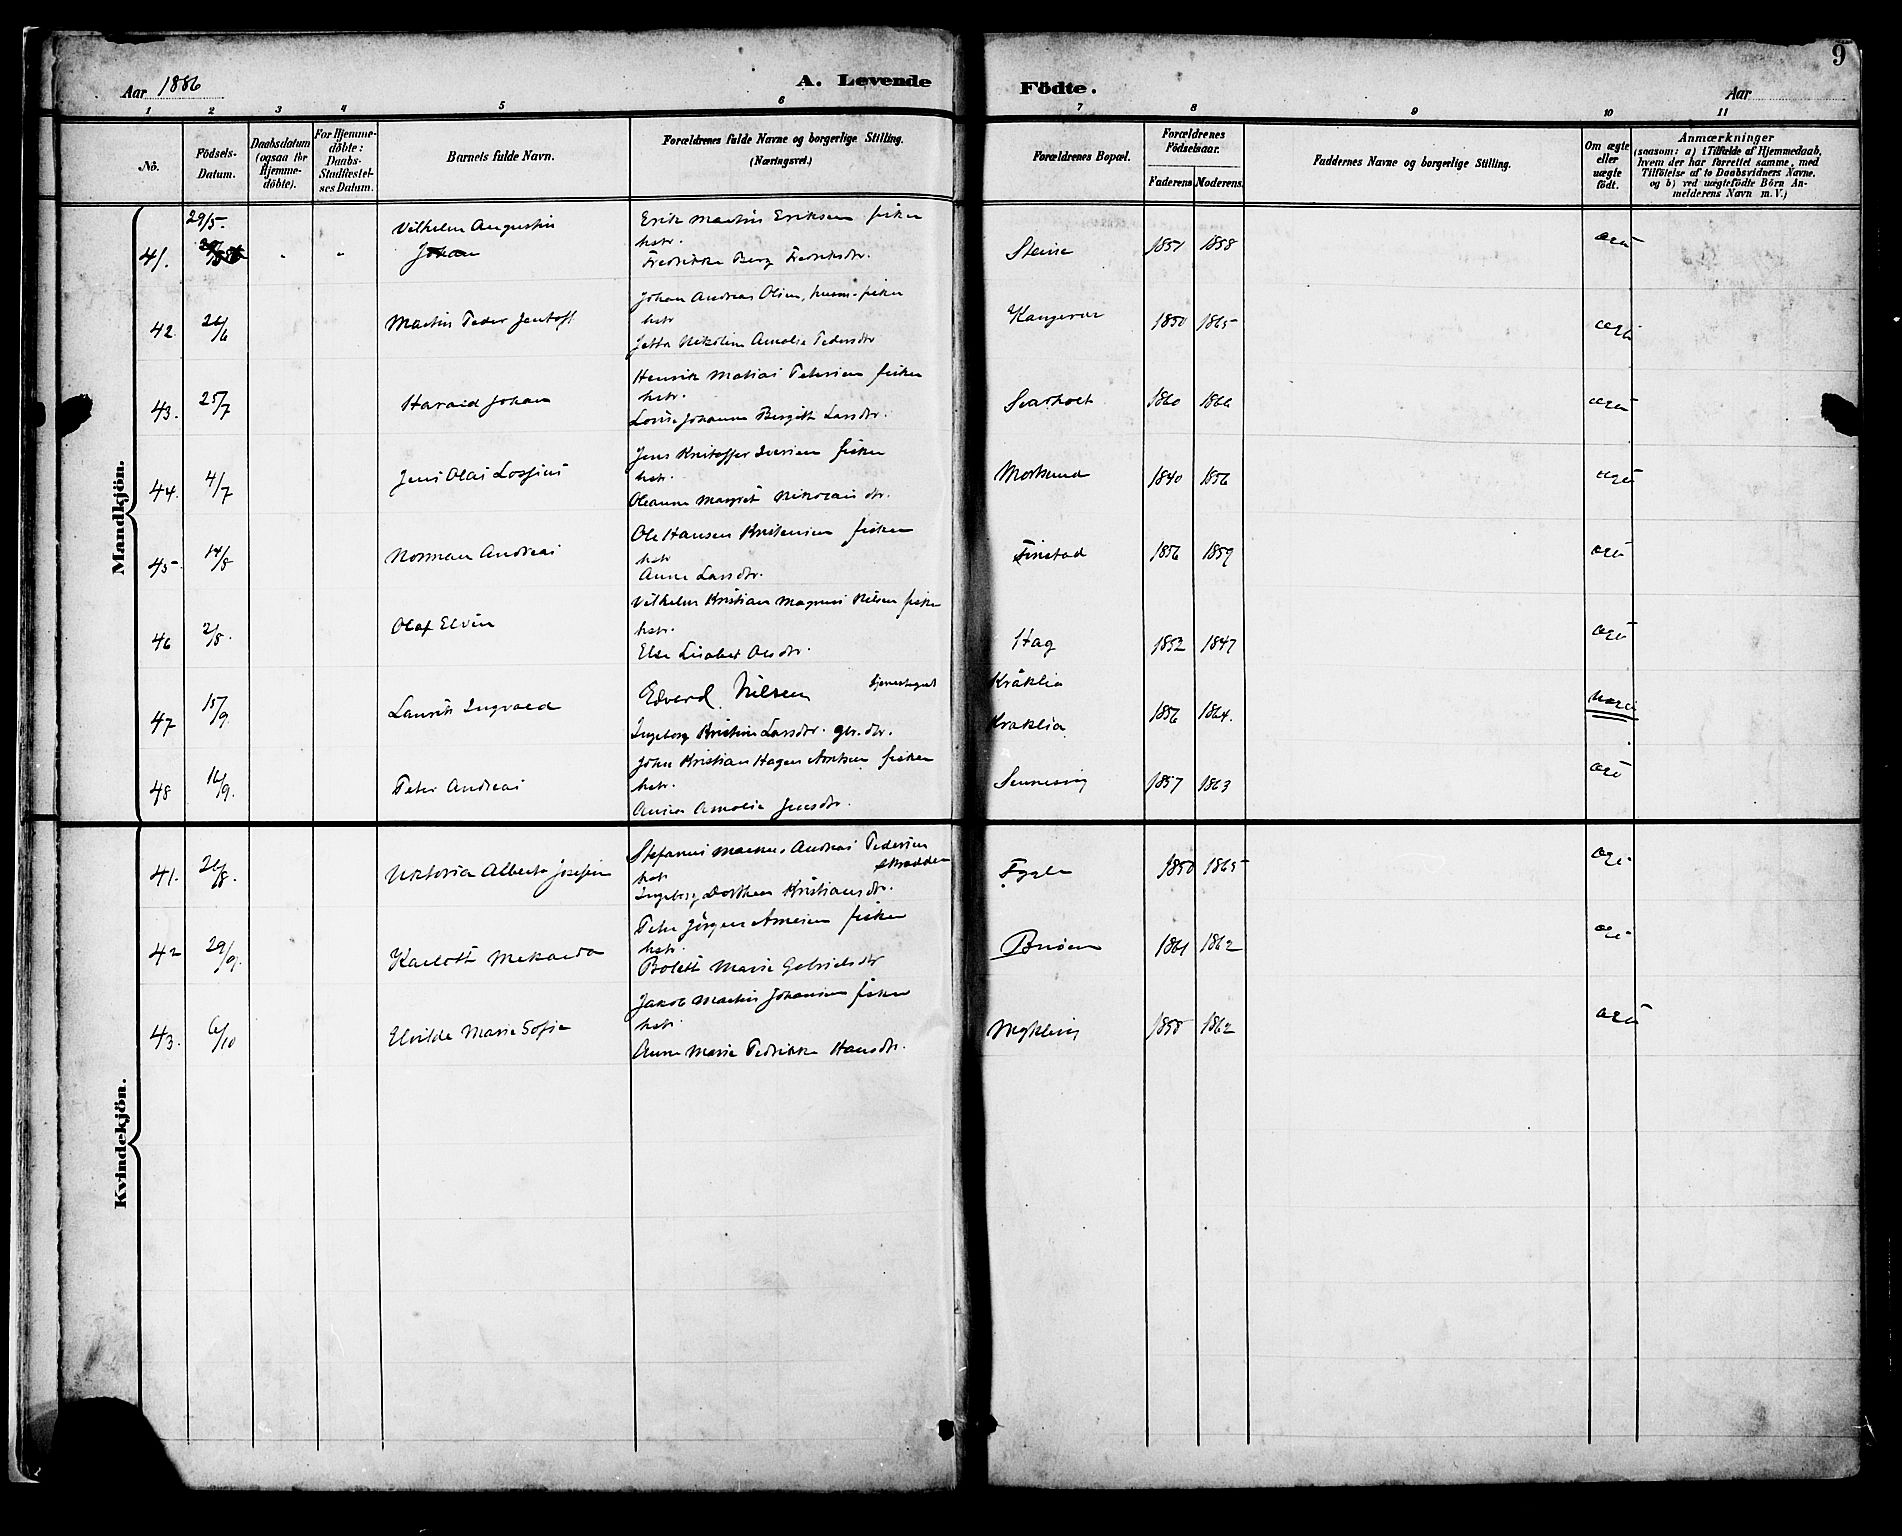 9
Aar 1886
A. Levende
Födte.
Aar
1 2 3 4 5 6 7 8 9 10 11
No.
Födsels-Datum.
Daabsdatum (ogsaa for Hjemme-döbte).
For Hjemme-döbte: Daabs-Stadfæstel-ses Datum.
Barnets fulde Navn.
Forældrenes fulde Navne og borgerlige Stilling. (Næringsvei.)
Forældrenes Bopæl.
Forældrenes Födselsaar.
Faderens. Moderens.
Faddernes Navne og borgerlige Stilling.
Om ægte eller uægte födt.
Anmærkninger
(saasom: a) i Tilfælde af Hjemmedaab, hvem der har forrettet samme, med Tilföielse af to Daabsvidners Navne. og b) ved uægtefödte Börn An-melderens Navn m. V.)
Mandkjön.
29/5.
Vilhelm Augustin
Erik Martin Eriksen fisker
41.
Johan
hstr.
Fredrikke Berg Fredriksdtr.
Steine
1851 1858
ægte
Johan Andreas Olsen, husm. fisker
42. 26/6
Martin Peder Jentoft
hstr
Jetta Nikoline Amalia Pedersdtr
1850 1865
ægte
Henrik Matias Petersen fisker
43. 25/7
Harald Johan
hstr.
Lovise Johanna Bergitte Larsdtr.
Svarholt
1860 1866
ægte
Jens Kristoffer Iversen fisker
44. 4/7
Jens Olai Lossius
hstr.
Oleanna Margret Nikolaisdtr.
Mortsund
1840 1856
ægte
Ole Hansen Kristensen fisker
45. 14/8
Norman Andreas
hstr
Anne Larsdtr.
Finstad
1856 1859
ægte
Vilhelm Kristian Magnus Nilsen fisker
46 2/8.
Olaf Elvin
hstr.
Else Lisabet Olsdtr.
Hag
1852 1847
ægte
Edvard Nilsen
Kråklia
47 15/9.
Laurits Ingvald
Ingeborg Kristine Larsdtr.
Kraklia
1856 1864.
uægte
Johan Kristian Hagen Arntsen fisker
48 16/9.
Peter Andreas
hstr.
Anna Amalia Jensdtr.
Sennesvig
1857 1863
ægte
Kvindekjön.
Stefanus Markus Andreas Pedersen skrædder
41. 26/8.
Viktoria Alberta Josefine
hstr
Ingeborg Dorthea Kristiansdtr.
Fygle
1850 1865
ægte
Peter Jörgen Arnesen fisker
42 29/9.
hstr.
Bolette Marie Gabrielsdtr
Buöen
1861 1862
ægte
Jakob Martin Johansen fisker
43. 6/10
Elvilde Marie Sofie
hstr.
Anne Marie Fedrikke Hansdtr.
Mykleving
1858 1862
ægte